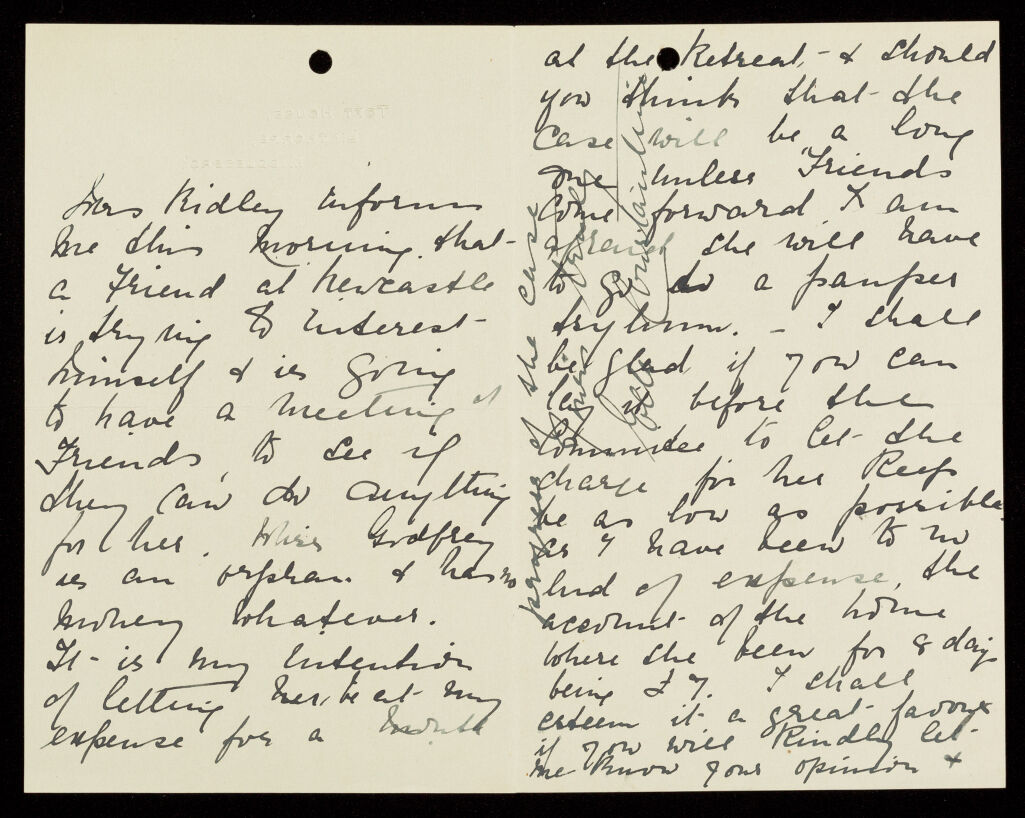 Mrs Ridley informs
me this morning that
a Friend at Newcastle
is trying to interest
himself & is going
to have a meeting of
Friends, to see if
they can do anything
for her. Miss Godfrey
is an orphan & has no
money whatever.
It is my intention
of letting her be at my
expense for a month
at the Retreat, & should
you think that the
case will be a long
one unless Friends
come forward I am
afraid she will have
to go to a pauper
asylum. - I shall
be glad if you can
lay it before the
Committee to let the
charge for her Keep
be as low as possible
as I have been to no
end of expense, the
account of the home
where she been for 8 days
being £7. I shall
esteem it a great favour
if you will Kindly let
me know your opinion &
progress of the case